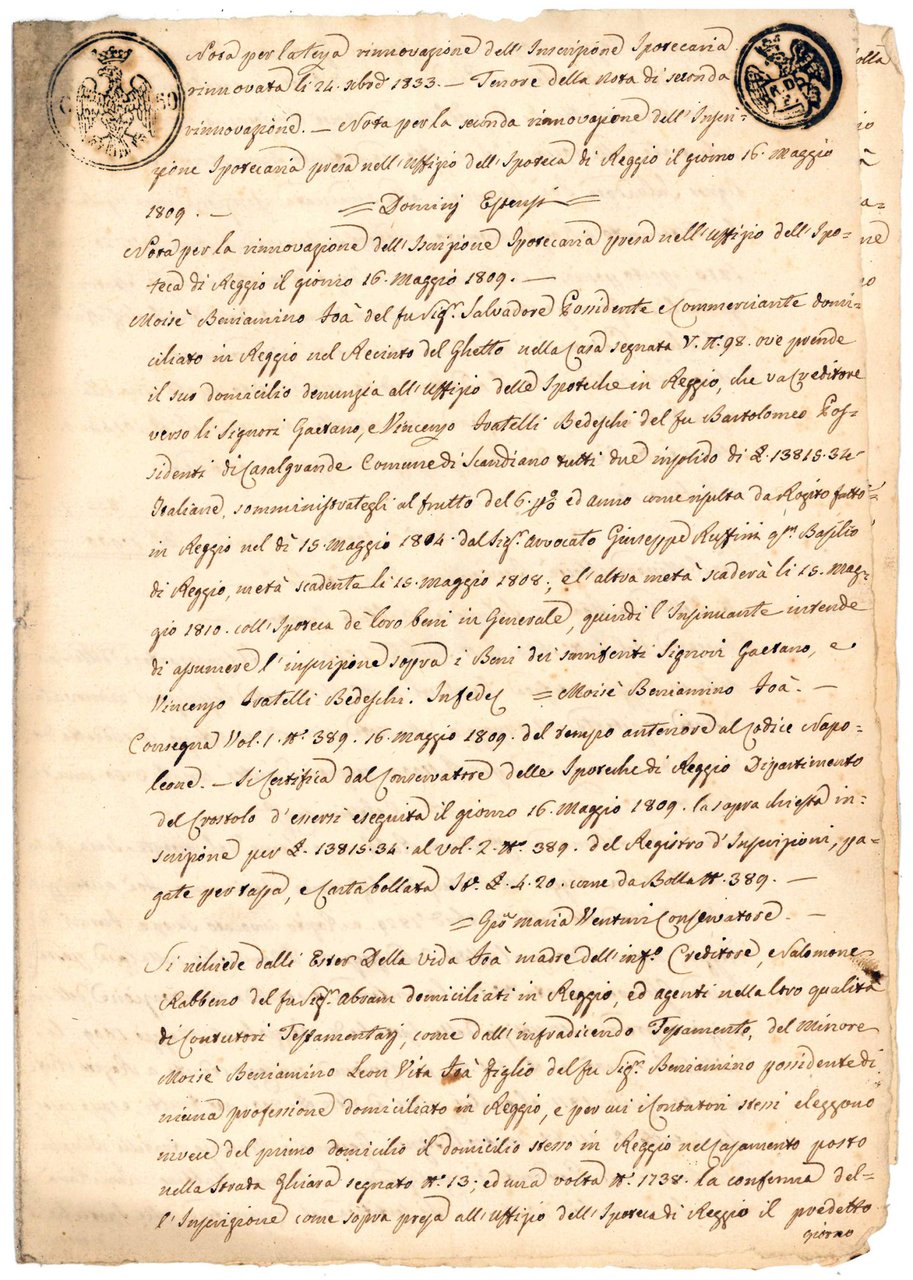 Nota per la terza rinnovazione dell'Inscrizione Ipotecaria
rinnovata li 24. 9bre 1833. — Tenore della nota di seconda
rinnovazione. — Nota per la seconda rinnovazione dell'Inscri-
zione Ipotecaria presa nell'Uffizio dell'Ipoteca di Reggio il giorno 16. Maggio
1809. — = Dominj Estensi =
Nota per la rinnovazione dell'Iscrizione Ipotecaria presa nell'Uffizio dell'Ipo-
teca di Reggio il giorno 16. Maggio 1809. —
Moisè Beniamino Foà del fu Sigr. Salvadore Possidente e Commerciante domi-
ciliato in Reggio nel Recinto del Ghetto nella Casa segnata V. No. 98. ove prende
il suo domicilio denunzia all'Uffizio delle Ipoteche in Reggio, che va Creditore
verso li Signori Gaetano, e Vincenzo Fratelli Bedeschi del fu Bartolomeo Pos-
sidenti di Casalgrande Comune di Scandiano tutti due insolido di £. 13815.34
Italiane, somministrategli al frutto del 6. p% ed anno come risulta da Rogito fatto
in Reggio nel dì 15 Maggio 1804. dal Sigr. Avvocato Giuseppe Ruffini qm. Basilio
di Reggio, metà scadente li 15. Maggio 1808; e l'altra metà scaderà li 15. Mag-
gio 1810. coll'Ipoteca de loro beni in Generale, quindi l'Insinuante intende
di assumere l'inscrizione sopra i Beni dei sunferiti Signori Gaetano, e
Vincenzo Fratelli Bedeschi. In fede = Moisè Beniamino Foà. —
Consegna Vol. 1. No. 389. 16. Maggio 1809. del tempo anteriore al Codice Napo-
leone. — Si Certifica dal Conservatore delle Ipoteche di Reggio Dipartimento
del Crostolo d'essersi eseguita il giorno 16 Maggio 1809. la sopra chiesta in-
scrizione per £. 13815.34. al Vol. 2. No. 389. del Registro d'Inscrizioni, pa-
gate per tassa, e Carta bollata It. £. 4.20. come da Bolla No. 389. —
= Gio. Maria Venturi Conservatore. —
Si richiede dalli Ester Della Vida Foà madre dell'info. Creditore, e Salomone
Rabbeno del fu Sigr. Abram domiciliati in Reggio, ed agenti nella loro qualità
di Contutori Testamentarj, come dall'infradicendo Testamento, del Minore
Moisè Beniamino Leon Vita Foà figlio del fu Sigr. Beniamino possidente di
niuna professione domiciliato in Reggio, e per cui i Contutori stessi eleggono
invece del primo domicilio il domicilio stesso in Reggio nel Casamento posto
nella Strada Ghiara segnato No. 13; ed una volta No. 1738. la conferma del-
l'Inscrizione come sopra presa all'Uffizio dell'Ipoteca di Reggio il predetto
giorno